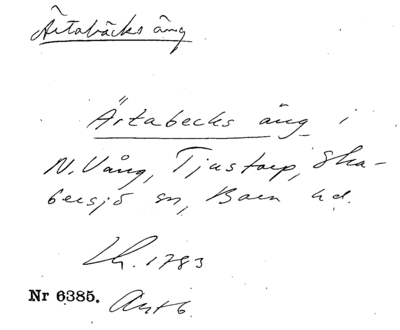 Ärtabäcks äng
Ärtabecks äng i
N. Vång, Tjustorp, Ska-
bersjö sn, Bara hd.
Lh. 1783
Nr 6385. Avt 6.